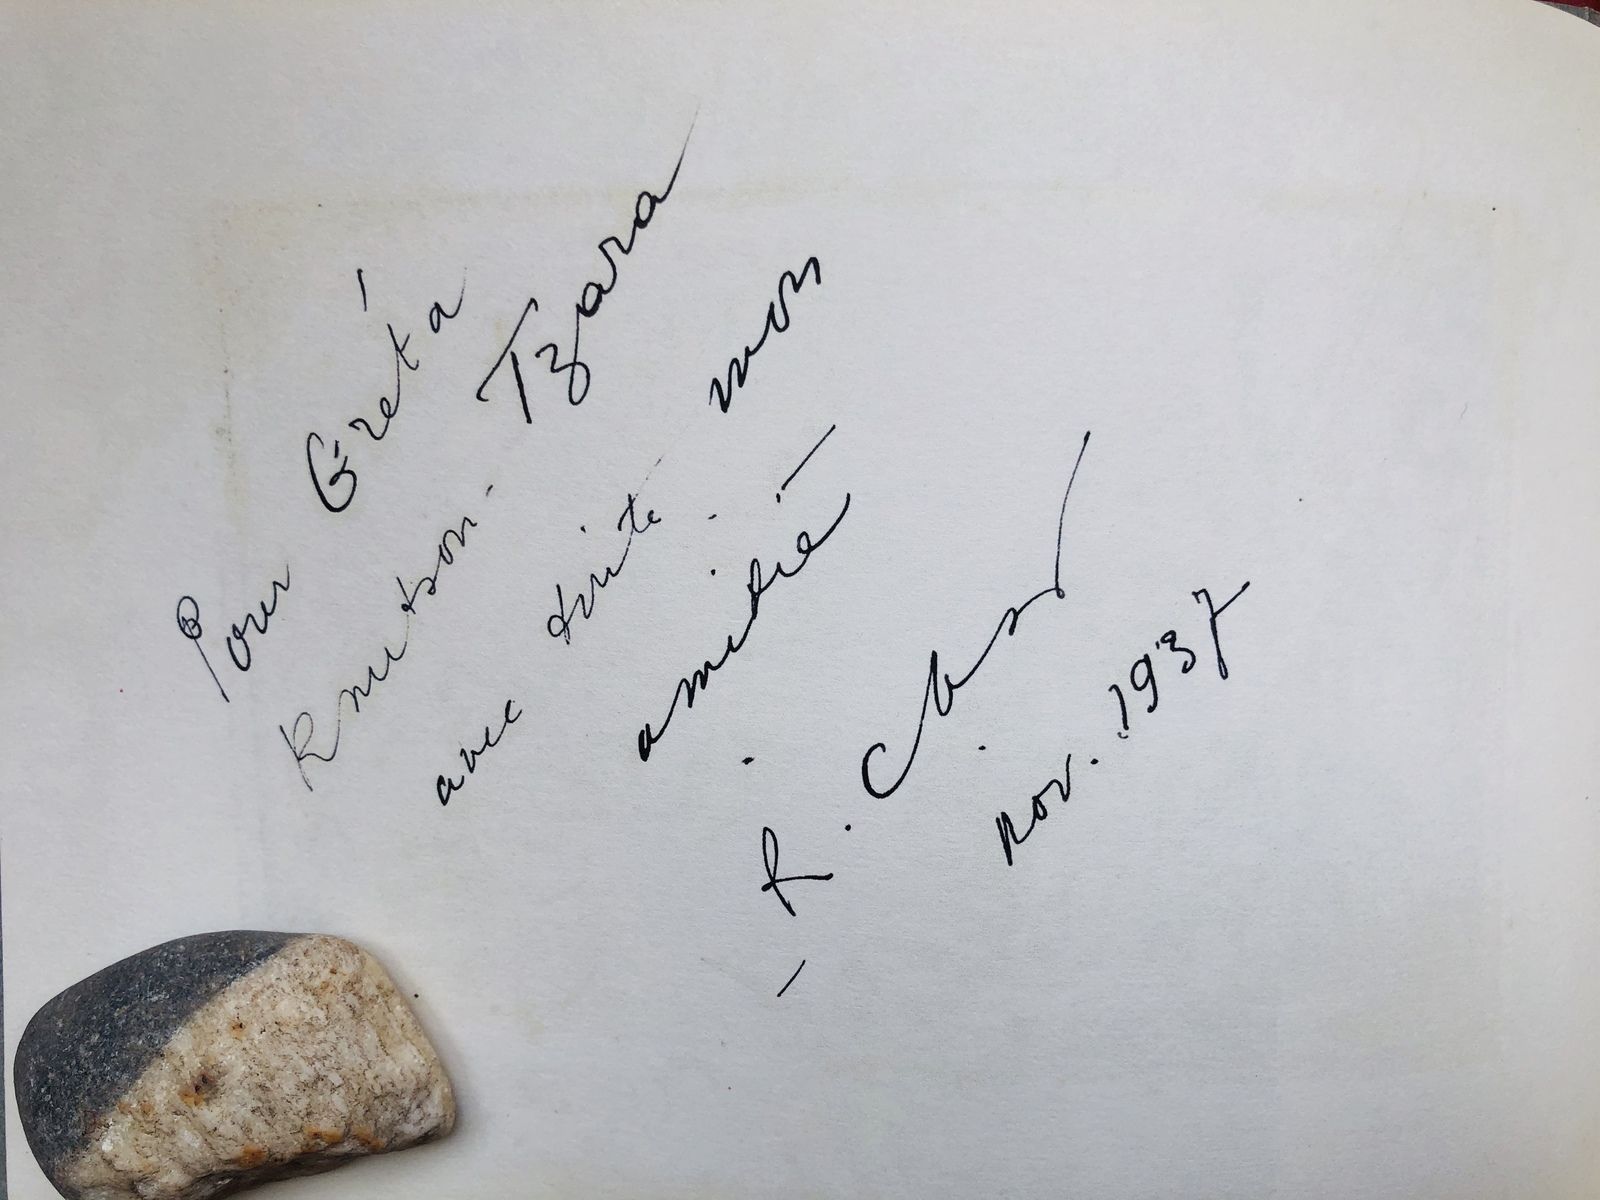 Pour Gréta
Knutson-Tzara
avec toute mon
amitié
R. Char
nov. 1937